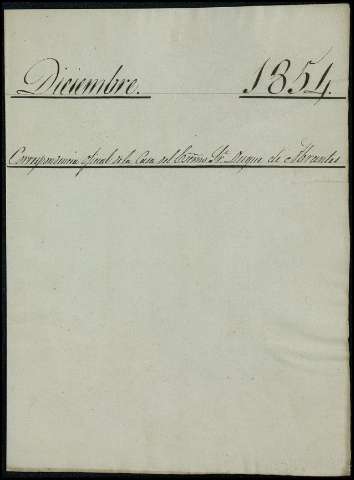 Diciembre. 1854.
Correspondencia oficial de la Casa del Excmo Sr. Duque de Abrantes